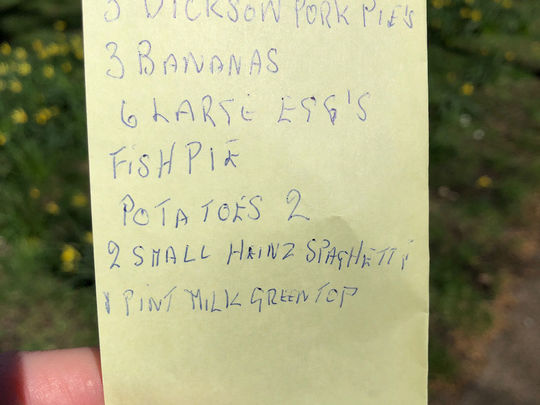 3 DICKSON PORK PIE'S
3 BANANAS
6 LARGE EGG'S
FISH PIE
POTATOES 2
2 SMALL HEINZ SPAGHETTI
1 PINT MILK GREEN TOP